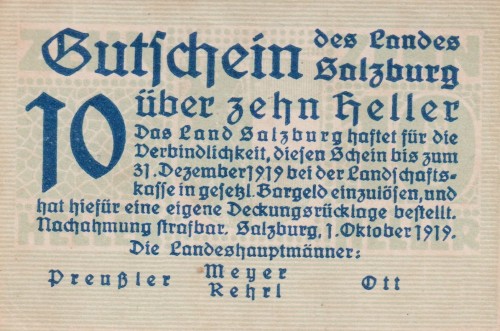 Gutschein des Landes
Salzburg
10 über zehn Heller
Das Land Salzburg haftet für die
Verbindlichkeit, diesen Schein bis zum
31. Dezember 1919 bei der Landschafts-
kasse in gesetzl. Bargeld einzulösen, und
hat hiefür eine eigene Deckungsrücklage bestellt.
Nachahmung strafbar. Salzburg, 1. Oktober 1919.
Die Landeshauptmänner:
Preußler Meyer Ott
Rehrl